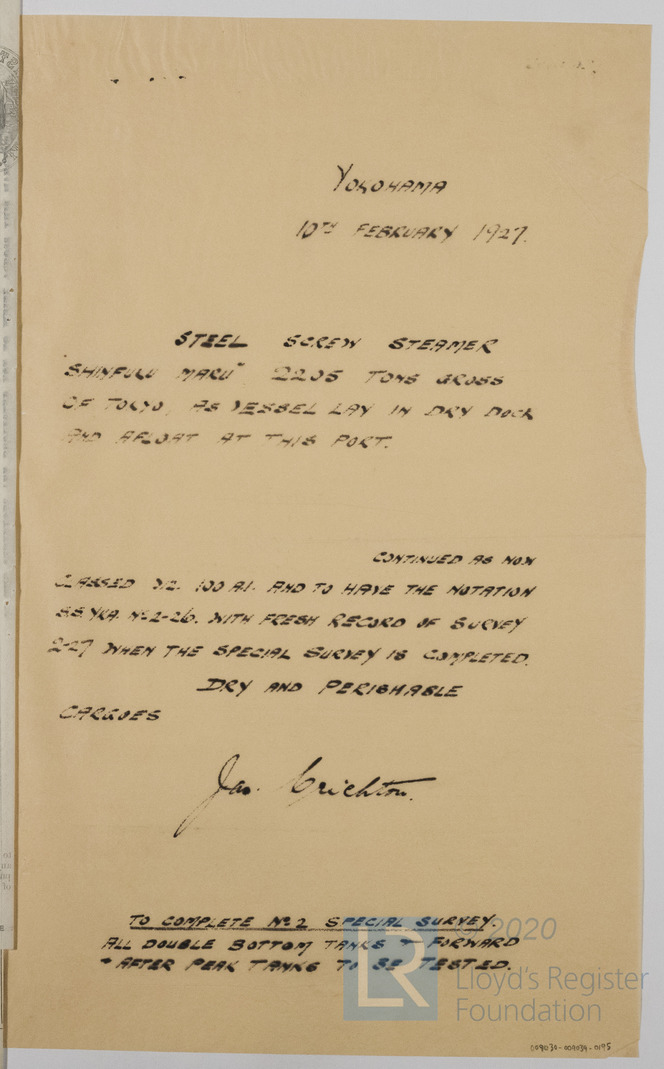 YOKOHAMA
10TH FEBRUARY 1927.
STEEL SCREW STEAMER
"SHINFUKU MARU" 2205 TONS GROSS
OF TOKYO, AS VESSEL LAY IN DRY DOCK
AND AFLOAT AT THIS PORT.
CONTINUED AS NOW
CLASSED 100 A.1. AND TO HAVE THE NOTATION
S.S. YKA. No 2-26. WITH FRESH RECORD OF SURVEY
2-27 WHEN THE SPECIAL SURVEY IS COMPLETED.
DRY AND PERISHABLE
CARGOES
Jas. Crichton.
TO COMPLETE No 2 SPECIAL SURVEY.
ALL DOUBLE BOTTOM TANKS + FORWARD
+ AFTER PEAK TANKS TO BE TESTED.
© 2020
LR
Lloyd's Register
Foundation
009030-009039-0195